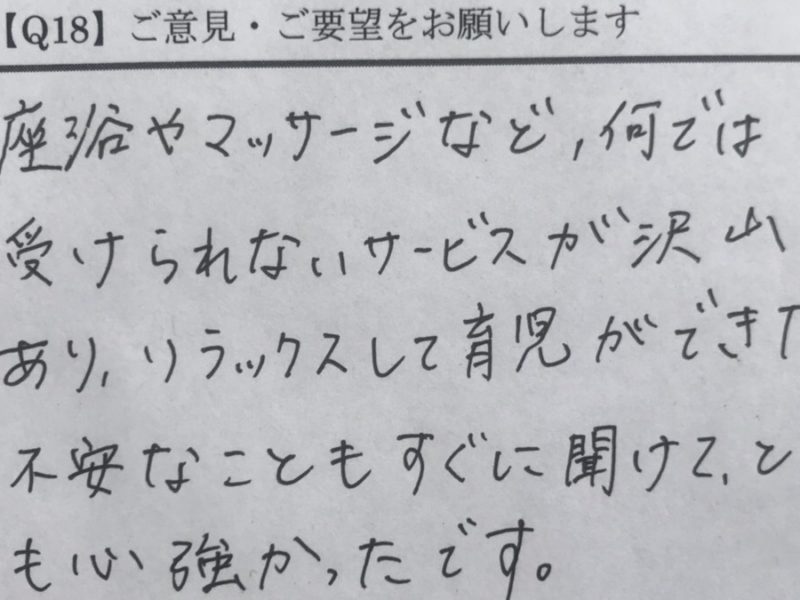 【Q18】ご意見・ご要望をお願いします
座浴やマッサージなど,何では
受けられないサービスが沢山
あり,リラックスして育児ができた
不安なこともすぐに聞けて、と
も心強かったです。